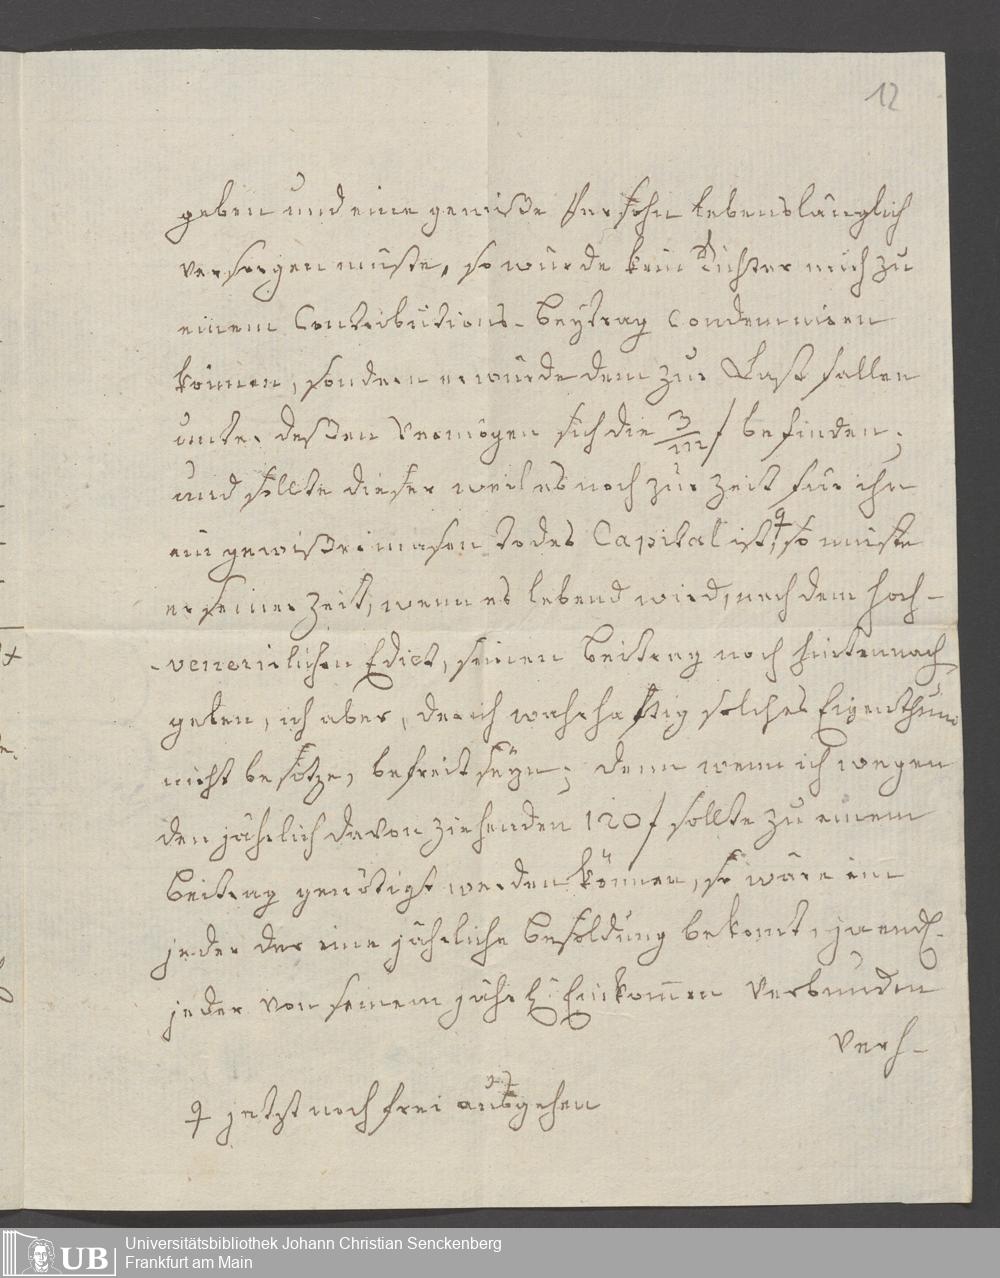 12
geben und eine gewiße Persohn lebenslänglich
versorgen müste, so würde kein Richter mich zu
einem Contributions-Beytrag condemniren
können, sondern er würde dem zur Last fallen
unter deßen Vermögen sich die 3/m f befinden;
und sollte dieser weil es noch zur Zeit für ihn
ein gewißermasen todes Capital ist, so müste
er seiner Zeit, wenn es lebend wird, nach dem hoch-
venerirlichen Edict, seinen Beitrag noch hintennach
geben, ich aber, der ich wahrhaftig solches Eigenthum
nicht besitze, befreit seyn; denn wenn ich wegen
den jährlich davon ziehenden 120 f sollte zu einem
Beitrag genötigt werden können, so wäre ein
jeder der eine jährliche Besoldung bekomt, ja endl.
jeder von seinem jährl. Einkom̅en verbunden
verh-
jetzt noch frei ausgehen
UB
Universitätsbibliothek Johann Christian Senckenberg
Frankfurt am Main